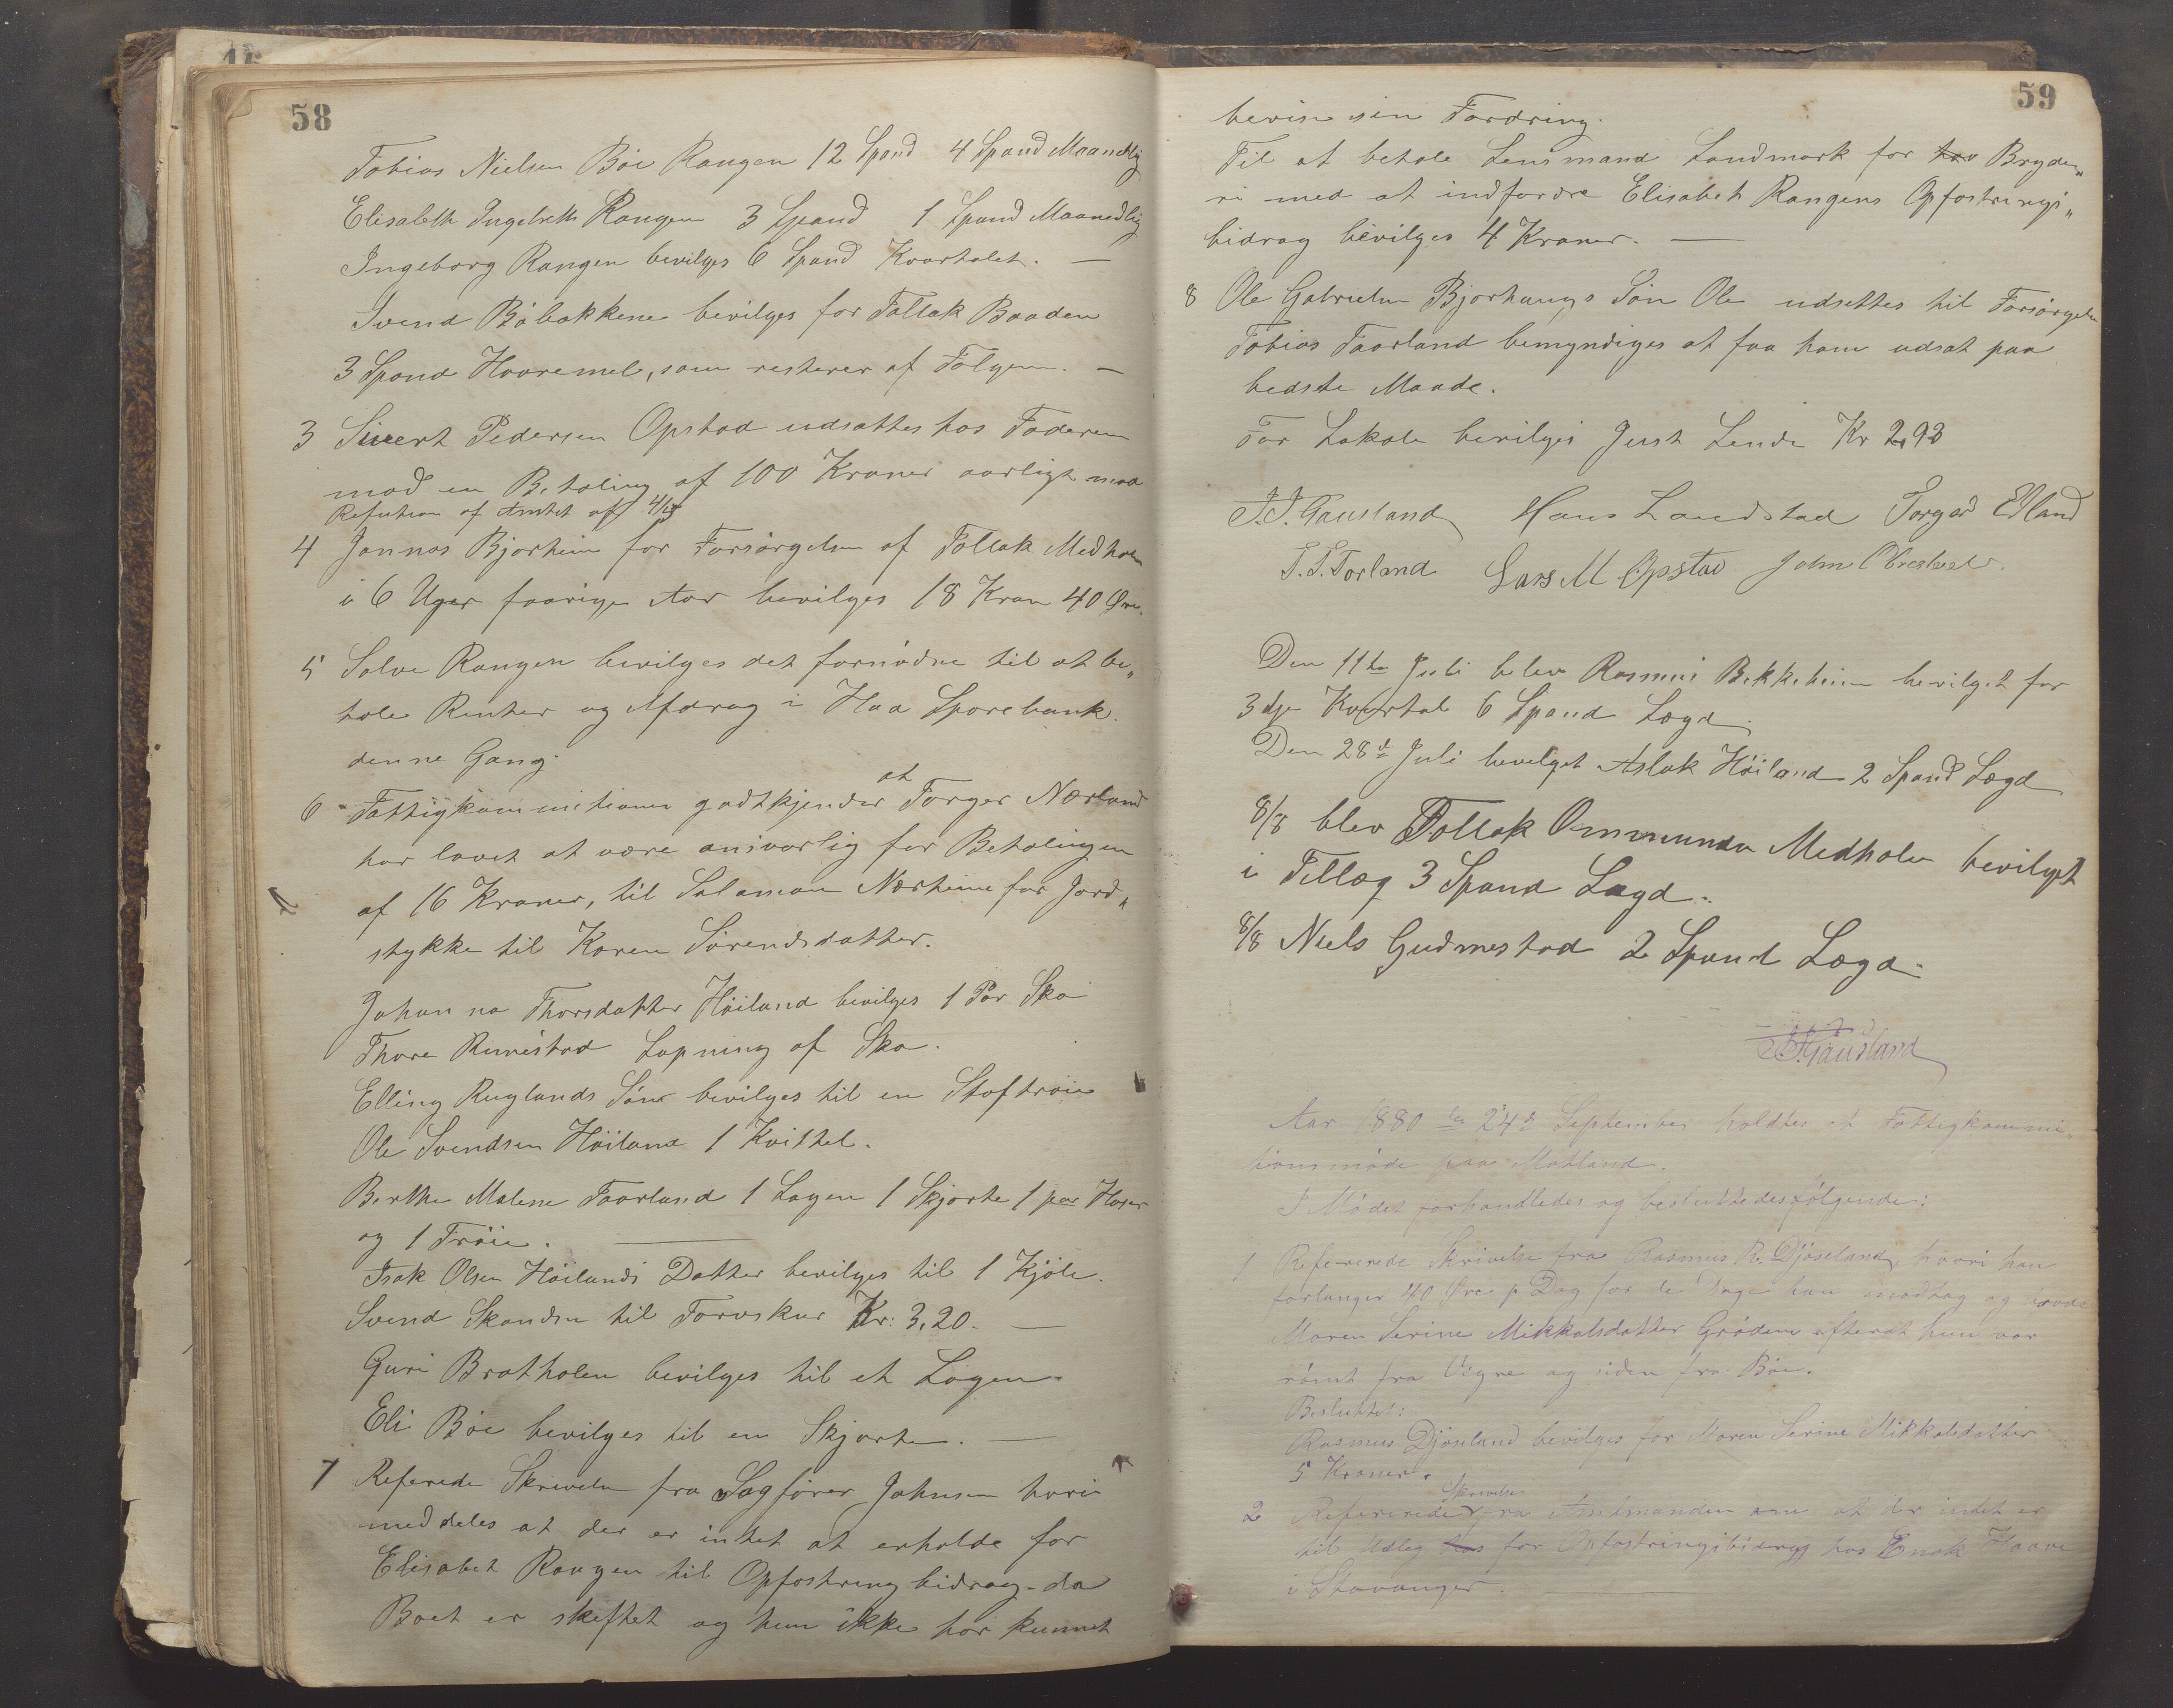 58
Tobias Nielsen Böe Rangen 12 Spand 4 Spand Maanedlig
Elisabeth Ingebreth Rangen 3 Spand 1 Spand Maanedlig
Ingeborg Rangen bevilges 6 Spand Kvartalet. —
Svend Böbakkene bevilges for Tollak Baaden
3 Spand Havremel, som resterer af Fölgen. —
3 Sivert Pedersen Opstad udsættes hos Faderen
mod en Betaling af 100 Kroner aarligt mod
Refution af Amtet af 4/10
4 Jonnas Bjorheim for Forsörgelsen af Tollak Medholen
i 6 Uger forrige Aar bevilges 18 Kron 40 Øre.
5 Salve Rangen bevilges det fornödne til at be„
tale Renter og Afdrag i Haa Sparebank.
denne Gang.
6 Fattigkommitionen godtkjender at Torger Nærland
har lovet at være ansvarlig for Betalingen
af 16 Kroner, til Salamon Nærheim for Jord„
stykke til Karen Sörensdatter.
Johanna Thorsdatter Höiland bevilges 1 Par Sko
Thore Rimestad Lapning af Sko.
Elling Ruglands Sön bevilges til en Stoftröie
Ole Svendsen Höiland 1 Kvittel.
Berthe Malene Taarland 1 Lagen 1 Skjorte 1 par Hoser
og 1 Tröie. —
Isak Olsen Höilands Datter bevilges til 1 Kjole.
Svend Skandsen til Torvskur Kr: 3,20. —
Guri Bratholen bevilges til et Lagen.
Eli Böe bevilges til en Skjorte. —
7 Referede Skrivelse fra Sagförer Johnsen hvori
meddeles at der er intet at erholde for
Elisabet Rangen til Opfostring bidrag - da
Boet er skiftet og hun ikke har kunnet
59
bevise sin Fordring.
Til at betale Lensmand Landmark for hav Bryde„
ri med at indfordre Elisabet Rangens Opfostrings„
bidrag bevilges 4 Kroner. —
8 Ole Gabrielsen Bjorhaugs Sön Ole udsettes til Forsörgelse
Tobias Taarland bemyndiges at faa ham udsat paa
bedste Maade.
For Lokale bevilges Just Lende Kr 2,93
J. J. Gausland Hans Laudstad Torger Edland
T. T. Torland Lars M Opstad John
Den 11te Juli belev Rasmus Bekkeheim bevilget for
3dje Kvartal 6 Spand Lægd.
Den 28de Juli bevilget Aslak Höiland 2 Spand Lægd
8/8 blev Tollak Ommundsen Medholen bevilget
i Tillæg 3 Spand Lægd.
8/8 Niels Gudmestad 2 Spand Lægd.
J. J. Gausland
Aar 1880 den 24de September holdtes et Fattigkommi„
tionsmöde paa Motland.
I Mödet forhandledes og besluttedes fölgende:
1 Refererede Skrivelse fra Rasmus R. Djöseland, hvori han
forlanger 40 Öre p Dag for de Dage han modtog og havde
Maren Serine Mikkalsdatter Gröden efterat hun var
römt fra Vigre og siden fra Böe.
Besluttet:
Rasmus Djöseland bevilges for Maren Serine Mikkalsdatter
5 Kroner.
2 Refererede Skrivelse fra Amtmanden om at der intet er
til Udlæg hos for Opfostringsbidrag hos Enok Haave
i Stavanger.